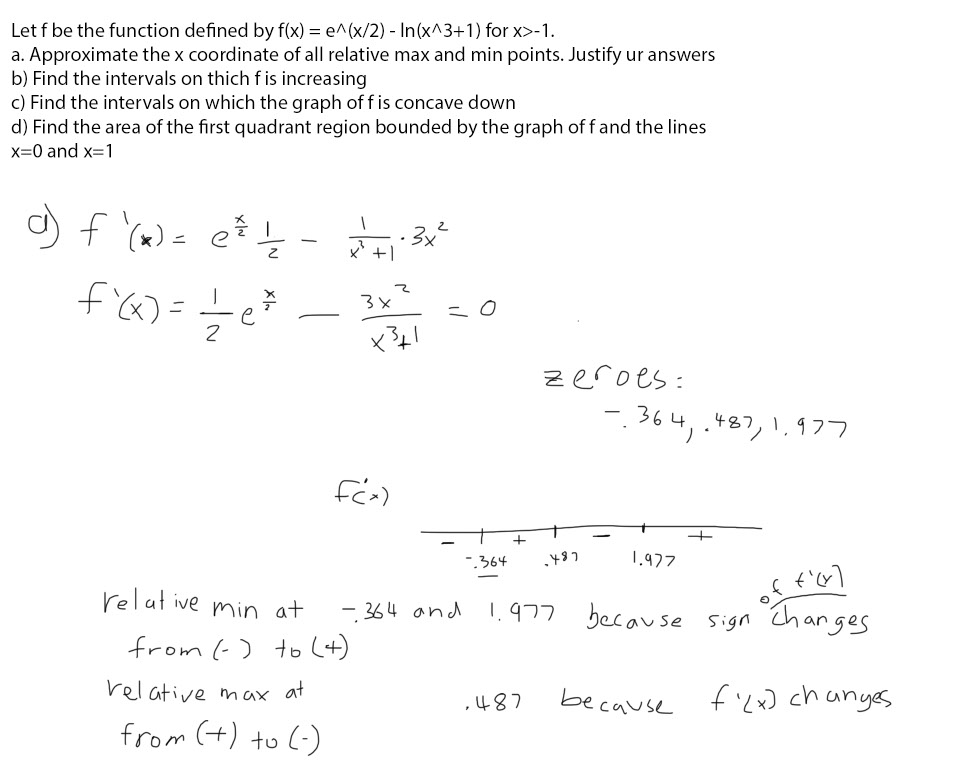 Let f be the function defined by f(x) = e^(x/2) - ln(x^3+1) for x>-1.
a. Approximate the x coordinate of all relative max and min points. Justify ur answers
b) Find the intervals on thich f is increasing
c) Find the intervals on which the graph of f is concave down
d) Find the area of the first quadrant region bounded by the graph of f and the lines
x=0 and x=1
a) f'(x) = e^(x/2) 1/2 - 1/(x^3+1) · 3x^2
f'(x) = 1/2 e^(x/2) - 3x^2/(x^3+1) = 0
zeroes:
-.364, .487, 1.977
f'(x)
- + - +
-.364 .487 1.977
relative min at -.364 and 1.977 because sign of f'(x) changes
from (-) to (+)
relative max at .487 because f'(x) changes
from (+) to (-)